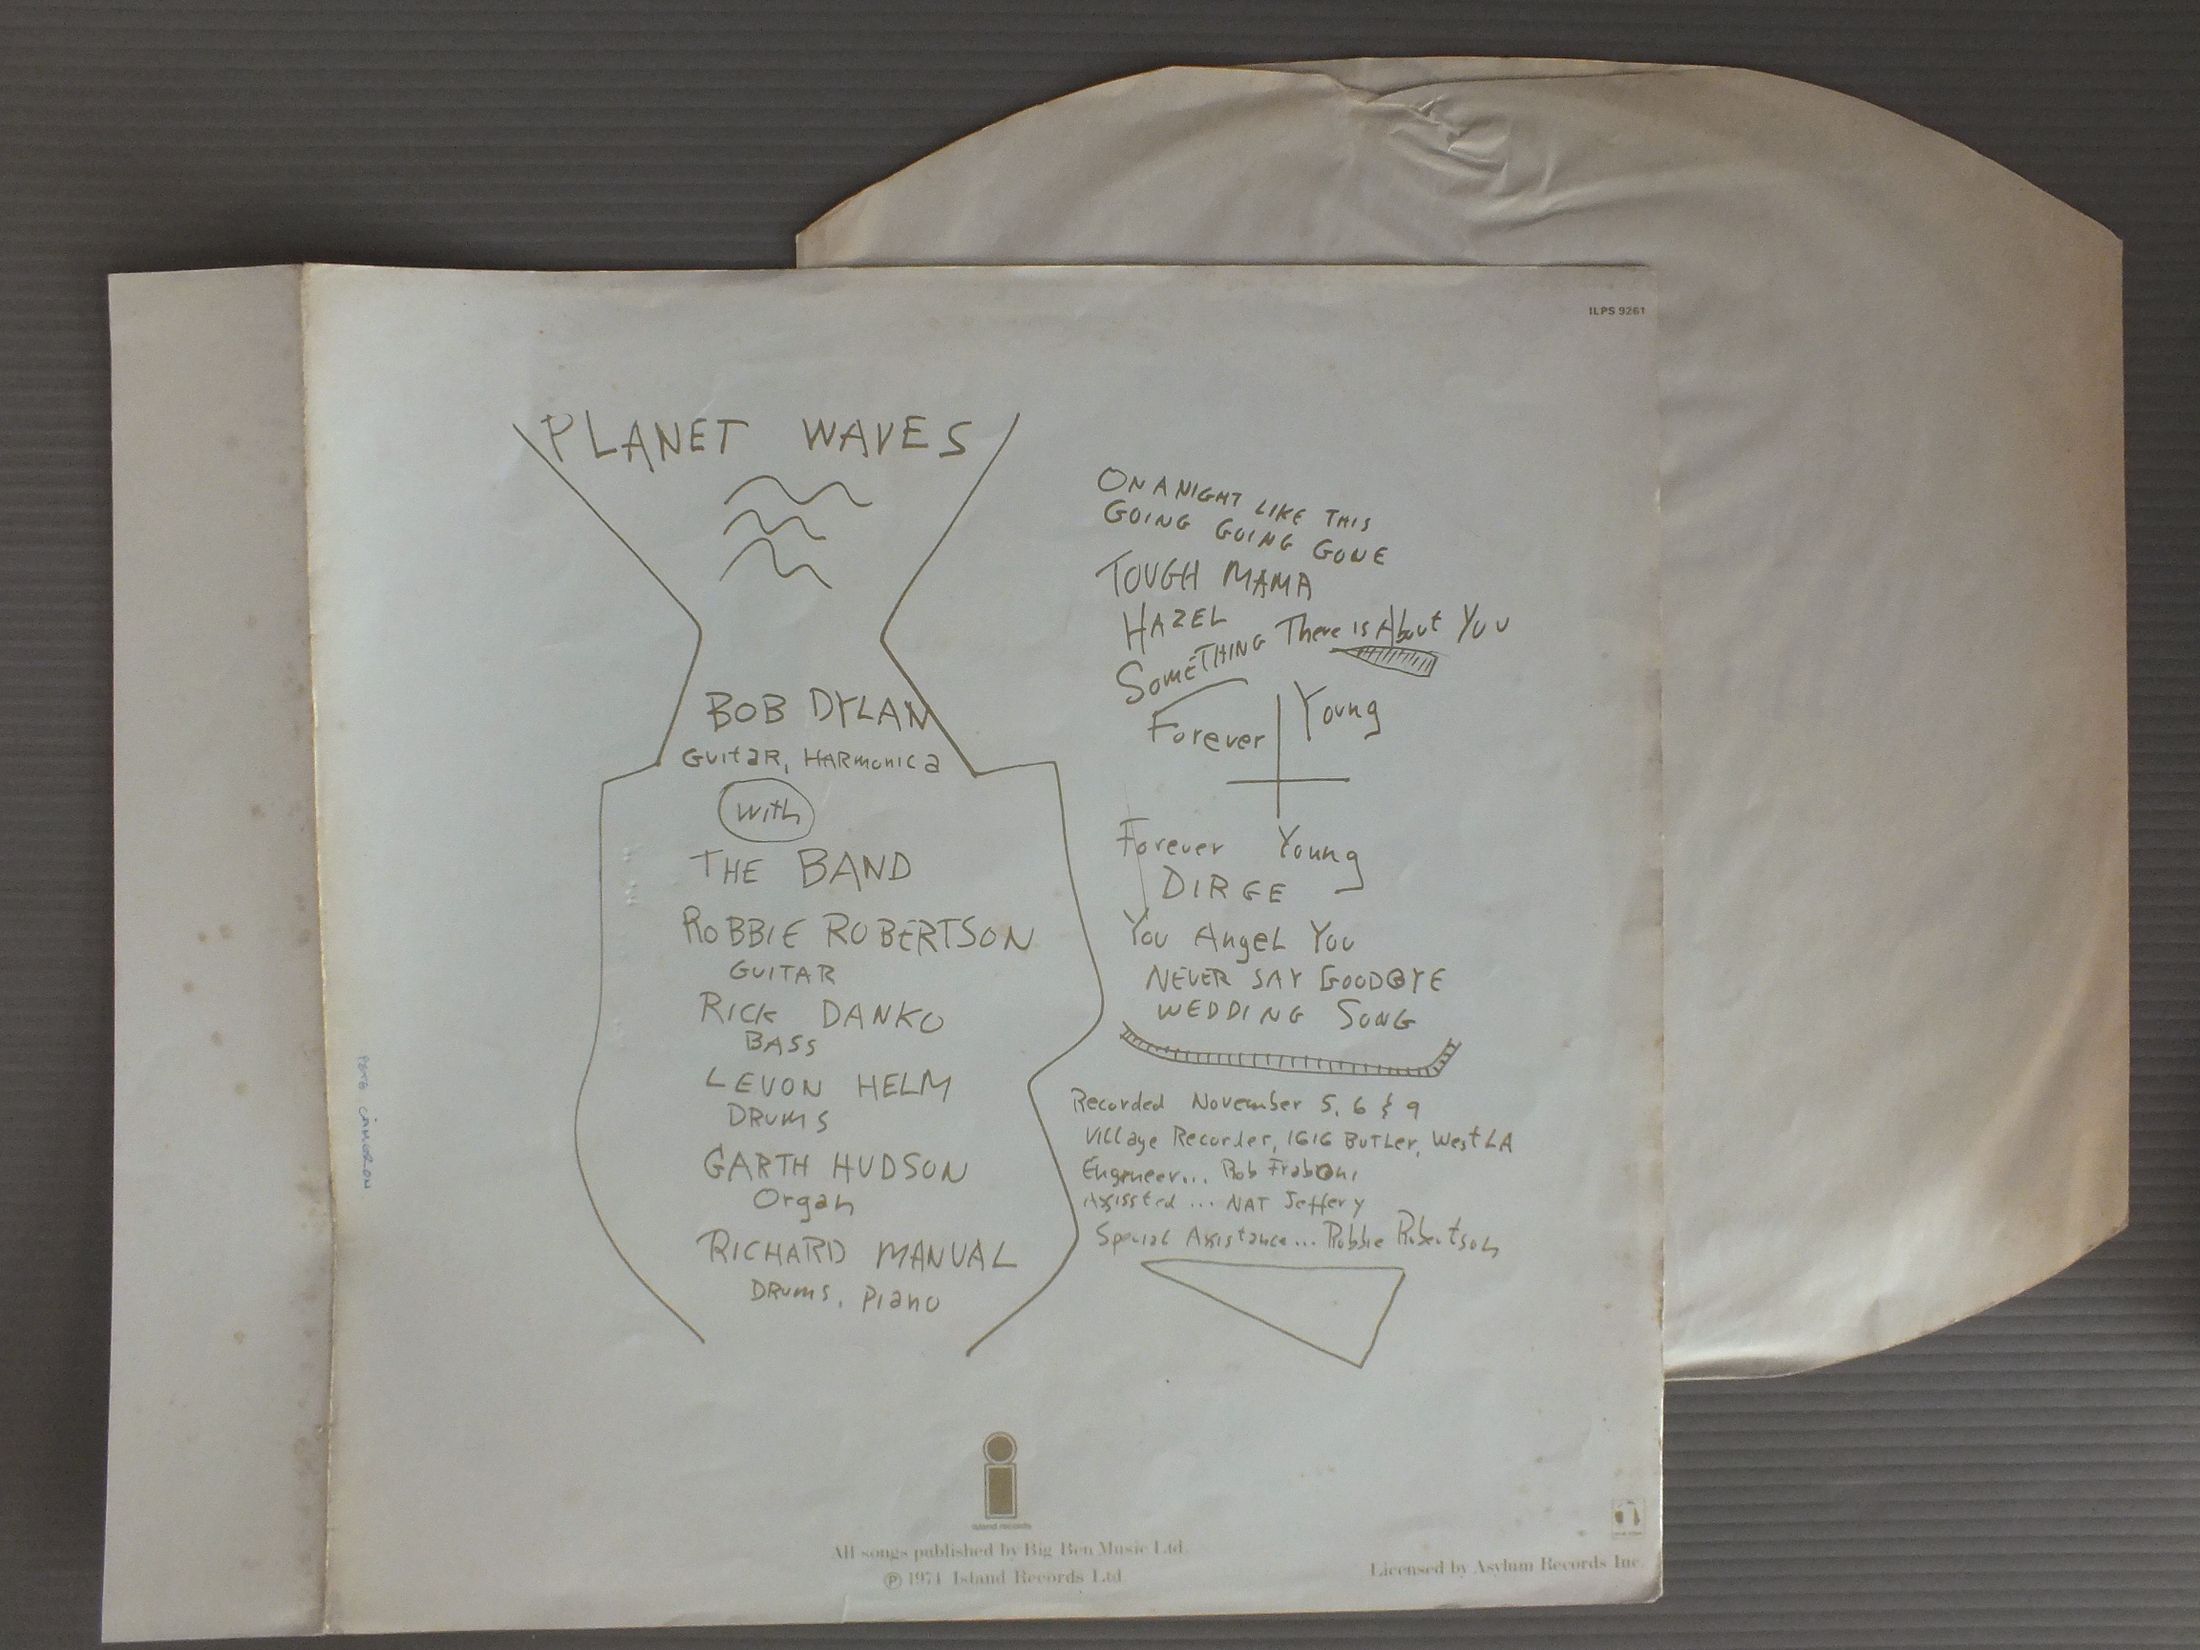 ILPS 9261
PLANET WAVES
BOB DYLAN
Guitar, Harmonica
with
THE BAND
ROBBIE ROBERTSON
GUITAR
RICK DANKO
BASS
LEVON HELM
DRUMS
GARTH HUDSON
Organ
RICHARD MANUAL
DRUMS, Piano
ON A NIGHT LIKE THIS
GOING GOING GONE
TOUGH MAMA
HAZEL
SOMETHING There is About You
Forever Young
Forever Young
DIRGE
You Angel You
NEVER SAY GOODBYE
WEDDING SONG
Recorded November 5, 6 & 9
Village Recorder, 1616 Butler, West LA
Engineer... Rob Fraboni
Assissted... NAT Jeffery
Special Assistance... Robbie Robertson
island records
All songs published by Big Ben Music Ltd.
℗ 1974 Island Records Ltd
Licensed by Asylum Records Inc.